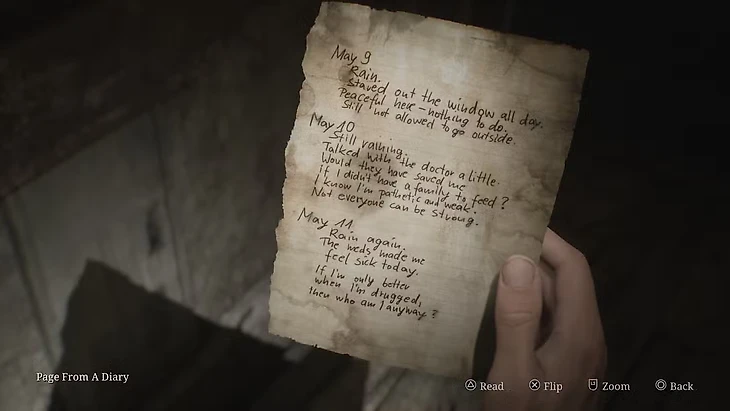 May 9
Rain.
Stared out the window all day.
Peaceful here - nothing to do.
Still not allowed to go outside.
May 10
Still raining.
Talked with the doctor a little.
Would they have saved me
if I didn't have a family to feed?
I know I'm pathetic and weak.
Not everyone can be strong.
May 11
Rain again.
The meds made me
feel sick today.
If I'm only better
when I'm drugged,
then who am I anyway?
Page From A Diary
Read
Flip
Zoom
Back